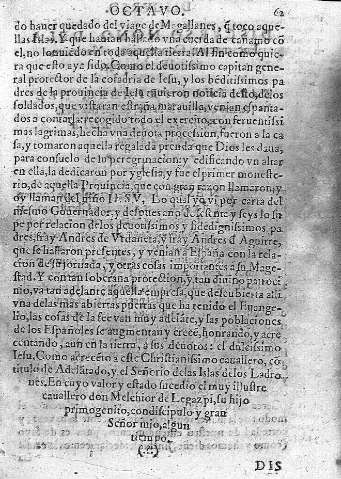 OCTAVO. 62
do hauer quedado del viage de Magallanes, q̃ toco aque-
llas Islas. Y que hauia hallado vna cuerda de cañamo cõ
el, no los uiedo en toda aquella tierra. Al fin como quie-
ra que esto aya sido. Como el deuotissimo capitan gene-
ral protector de la cofadria de Iesu, y los bẽditissimos pa
dres de la prouincia de Iesu tuuieron noticia desto, de los
soldados, que vistaran estraña marauilla, venian espanta-
dos a contarla: recogido todo el exercito, con feruentissi
mas lagrimas, hecha vna deuota procession, fueron a la ca
sa, y tomaron aquella regalada prenda que Dios les daua,
para consuelo de su peregrinacion: y edificando vn altar
en ella, la dedicaron por yglesia, y fue el primer moneste-
rio, de aquella Prouincia, que con gran razon llamaron, y
oy llaman del niño IESV. Lo qual yo vi por carta del
mesmo Gouernador, y desques año de sesenta y seys lo su
pe por relacion de los deuotissimos y fidedignissimos pa
dres, fray Andres de Vrdaneta, y fray Andres d̃ Aguirre,
que se hallaron presentes, y venian a España con la rela-
cion de su jornada, y otras cosas importantes a su Mage-
stad. Y con tan soberana protection, y tan diuino patroci
nio, va tan adelante aquella empresa, que descubierta alli
vna delas mas abiertas puertas que ha tenido el Euange-
lio, las cosas de la fee van muy adelãte, y las poblaciones
de los Españoles se augmentan y crecẽ, honrando, y acre
centando, aun en la tierra, a sus deuotos: el dulcissimo
Iesu. Como acrecento a este Christianissimo cauallero, cõ
titulo de Adelãtado, y el Señorio de las Islas de los Ladro
nes. En cuyo valor y estado sucedio el muy illustre
cauallero don Melchior de Legazpi, su hijo
primogenito, condiscipulo y gran
Señor mio, algun
tiempo.
(∴)
DIS